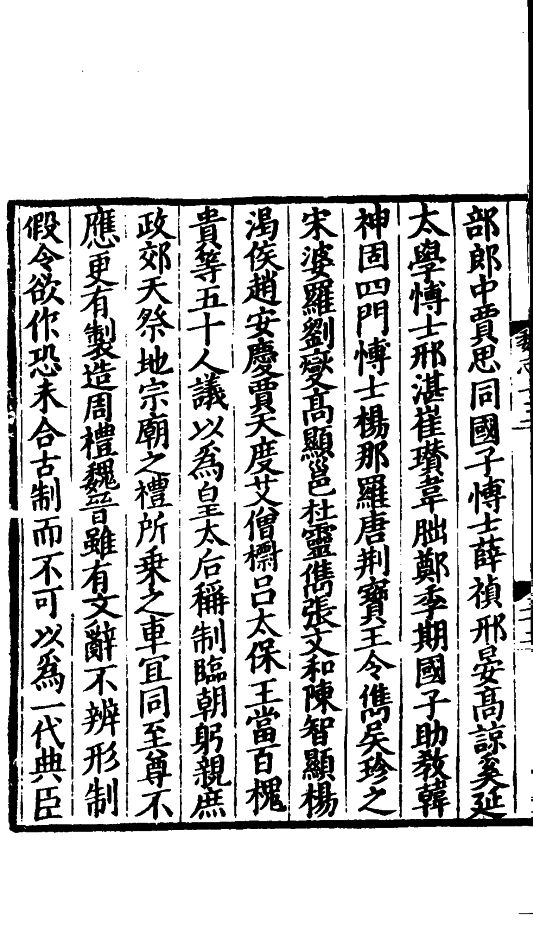 部郎中賈思同國子愽士薛禎邢晏高諒奚延
太學愽士邢湛崔瓚韋朏鄭季期國子助教韓
神固四門愽士楊那羅唐荆寶王令儁吳珍之
宋婆羅劉燮髙顯邕杜靈儁張文和陳智顯楊
渴侯趙安慶賈天度艾僧𣞙吕太保王當百槐
貴等五十人議以為皇太后稱制臨朝躬親庶
政郊天祭地宗廟之禮所乗之車冝同至尊不
應更有製造周禮魏晉雖有文辭不辨形制
假令欲作恐未合古制而不可以為一代典臣